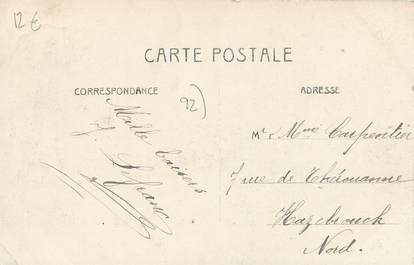 12 €
CARTE POSTALE
CORRESPONDANCE
ADRESSE
92)
Mille baisers
J. Lefranc
Mr & Mme Carpentier
7 rue de Thérouanne
Hazebrouck
Nord.